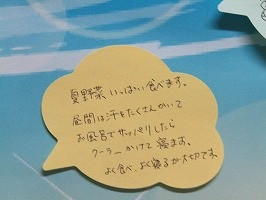 夏野菜いっぱい食べます。
昼間は汗をたくさんかいて
お風呂でサッパリしたら
クーラーかけて寝ます。
よく食べ、よく寝るが大切です。